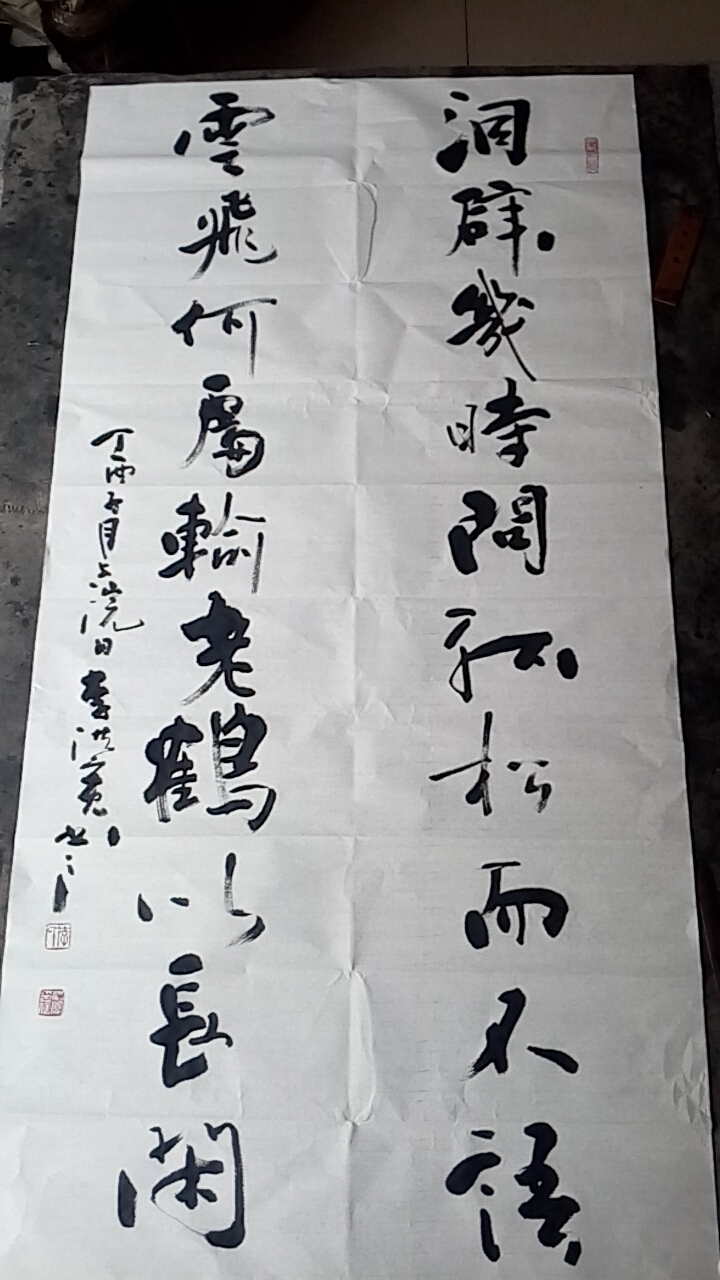 洞辟幾時問孤松而不語
雲飛何處輸老鶴以長閑
丁酉月上浣日李洪書